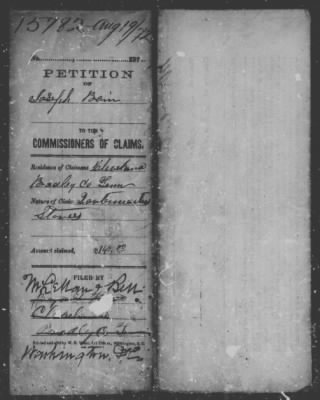 15782 Aug 19/72
No. 187
PETITION
OF
Joseph Bain
TO THE
COMMISSIONERS OF CLAIMS.
Residence of Claimant: Cleveland
Bradley Co Tenn
Nature of Claim: Quartermaster
Stores
Amount claimed, $140.00
FILED BY
Cleveland
Bradley Co. T
Washington, D.C.